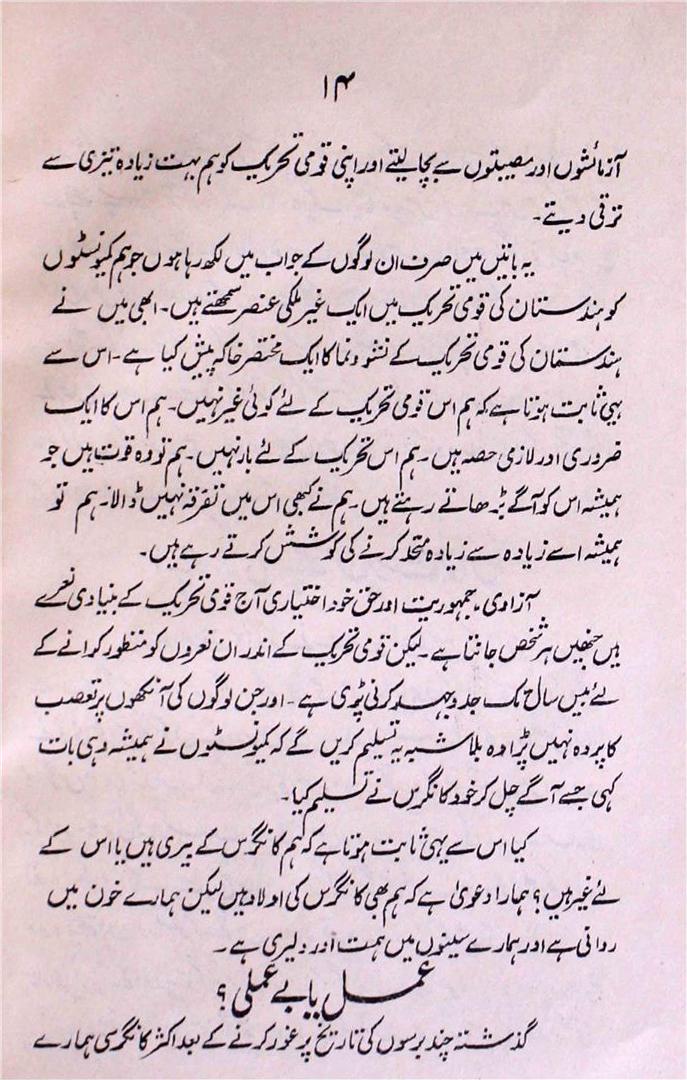 ۱۴
آزمائشوں اور مصیبتوں سے بچا لیتے اور اپنی قومی تحریک کو ہم بہت زیادہ تیزی سے
ترقی دیتے۔
یہ باتیں میں صرف ان لوگوں کے جواب میں لکھ رہا ہوں جو ہم کمیونسٹوں
کو ہندستان کی قومی تحریک میں ایک غیر ملکی عنصر سمجھتے ہیں۔ ابھی میں نے
ہندستان کی قومی تحریک کے نشو و نما کا ایک مختصر خاکہ پیش کیا ہے۔ اس سے
یہی ثابت ہوتا ہے کہ ہم اس قومی تحریک کے لئے کوئی غیر نہیں۔ ہم اس کا ایک
ضروری اور لازمی حصہ ہیں۔ ہم اس تحریک کے لئے بار نہیں۔ ہم تو وہ قوت ہیں جو
ہمیشہ اس کو آگے بڑھاتے رہتے ہیں۔ ہم نے کبھی اس میں تفرقہ نہیں ڈالا۔ ہم تو
ہمیشہ اسے زیادہ سے زیادہ متحد کرنے کی کوشش کرتے رہے ہیں۔
آزادی، جمہوریت اور حق خود اختیاری آج قومی تحریک کے بنیادی نعرے
ہیں جنھیں ہر شخص جانتا ہے۔ لیکن قومی تحریک کے اندر ان نعروں کو منظور کرانے کے
لئے بیس سال تک جدوجہد کرنی پڑی ہے۔ اور جن لوگوں کی آنکھوں پر تعصب
کا پردہ نہیں پڑا وہ بلا شبہ یہ تسلیم کریں گے کہ کمیونسٹوں نے ہمیشہ وہی بات
کہی جسے آگے چل کر خود کانگرس نے تسلیم کیا۔
کیا اس سے یہی ثابت ہوتا ہے کہ ہم کانگرس کے بیری ہیں یا اس کے
لئے غیر ہیں؟ ہمارا دعویٰ ہے کہ ہم بھی کانگرس کی اولاد ہیں لیکن ہمارے خون میں
روانی ہے اور ہمارے سینوں میں ہمت اور دلیری ہے۔
عمل یا بے عملی؟
گذشتہ چند برسوں کی تاریخ پر غور کرنے کے بعد اکثر کانگرسی ہمارے